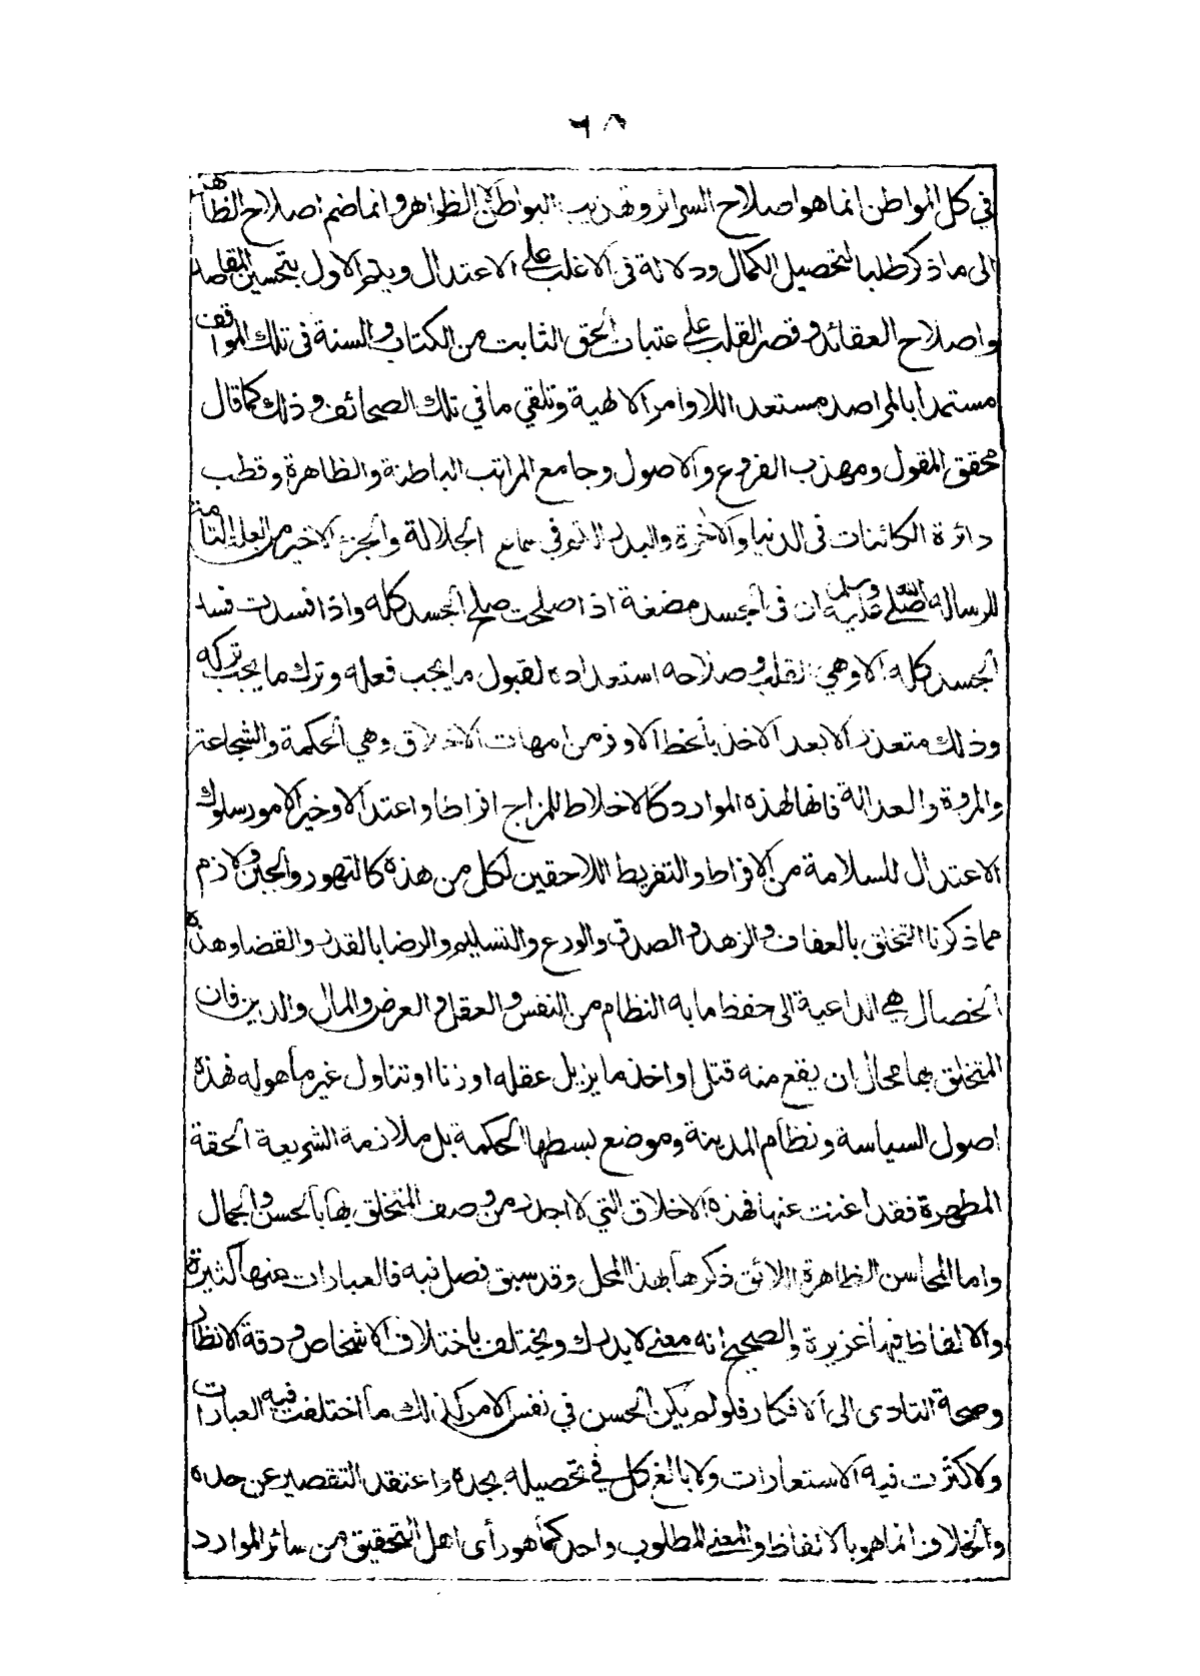 ٦٨
في كل المواطن انما هو اصلاح السرائر وتهذيب البواطن لا الظواهر وانما ضم اصلاح الظاهر
الى ما ذكر طلبا لتحصيل الكمال ودلالة فى الاغلب على الاعتدال ويتم الاول بتحسين المقاصد
واصلاح العقائد وقصر القلب على عتبات الحق الثابت من الكتاب والسنة فى تلك المواقف
مستمدا بالمراصد مستعدا للاوامر الالهية وتلقي ما في تلك الصحائف وذلك كما قال
محقق المقول ومهذب الفروع والاصول وجامع المراتب الباطنة والظاهرة وقطب
دائرة الكائنات فى الدنيا والاخرة والبدر في الجلالة والجزء الاخير من العلة التامة
للرسالة صلى الله عليه وسلم ان فى الجسد مضغة اذا صلحت صلح الجسد كله واذا فسدت فسد
الجسد كله الا وهي القلب وصلاحه استعداده لقبول ما يجب فعله وترك ما يجب تركه
وذلك متعذر الا بعد الاخذ بالحظ الاوفر من امهات الاخلاق وهي الحكمة والشجاعة
والمروة والعدالة فانها لهذه الموارد كالاخلاط للمزاج افراطا واعتدالا وخير الامور سلوك
الاعتدال للسلامة من الافراط والتفريط اللاحقين لكل من هذه كالتهور والجبن ولازم
مما ذكرنا التخلق بالعفاف والزهد والصدق والورع والتسليم والرضا بالقدر والقضا وهذه
الخصال هي الداعية الى حفظ ما به النظام من النفس والعقل والعرض والمال والدين فان
المتخلق بها محال ان يقع منه قتل او اخذ ما يزيل عقله او زنا او تناول غير ما هو له فهذه
اصول السياسة ونظام المدينة وموضع بسطها الحكمة بل ملازمة الشريعة الحقة
المطهرة فقد اغنت عنها فهذه الاخلاق التي لا اجل من وصف المتخلق بها بالحسن والجمال
واما المحاسن الظاهرة اللائق ذكرها بهذا المحل وقد سبق فصل فيه فالعبارات عنها كثيرة
والالفاظ فيها غزيرة والصحيح انه معنى لا يدرك ويختلف باختلاف الاشخاص ودقة الانظار
وصحة التادى الى الافكار فلو لم يكن الحسن في نفس الامر كذلك ما اختلفت فيه العبارات
ولا كثرت فيه الاستعارات ولا بالغ كل في تحصيله بجده واعتقد التقصير عن حده
والخلاف انما هو بالالفاظ والمعنى المطلوب واحد كما هو رأى اهل التحقيق من سائر الموارد